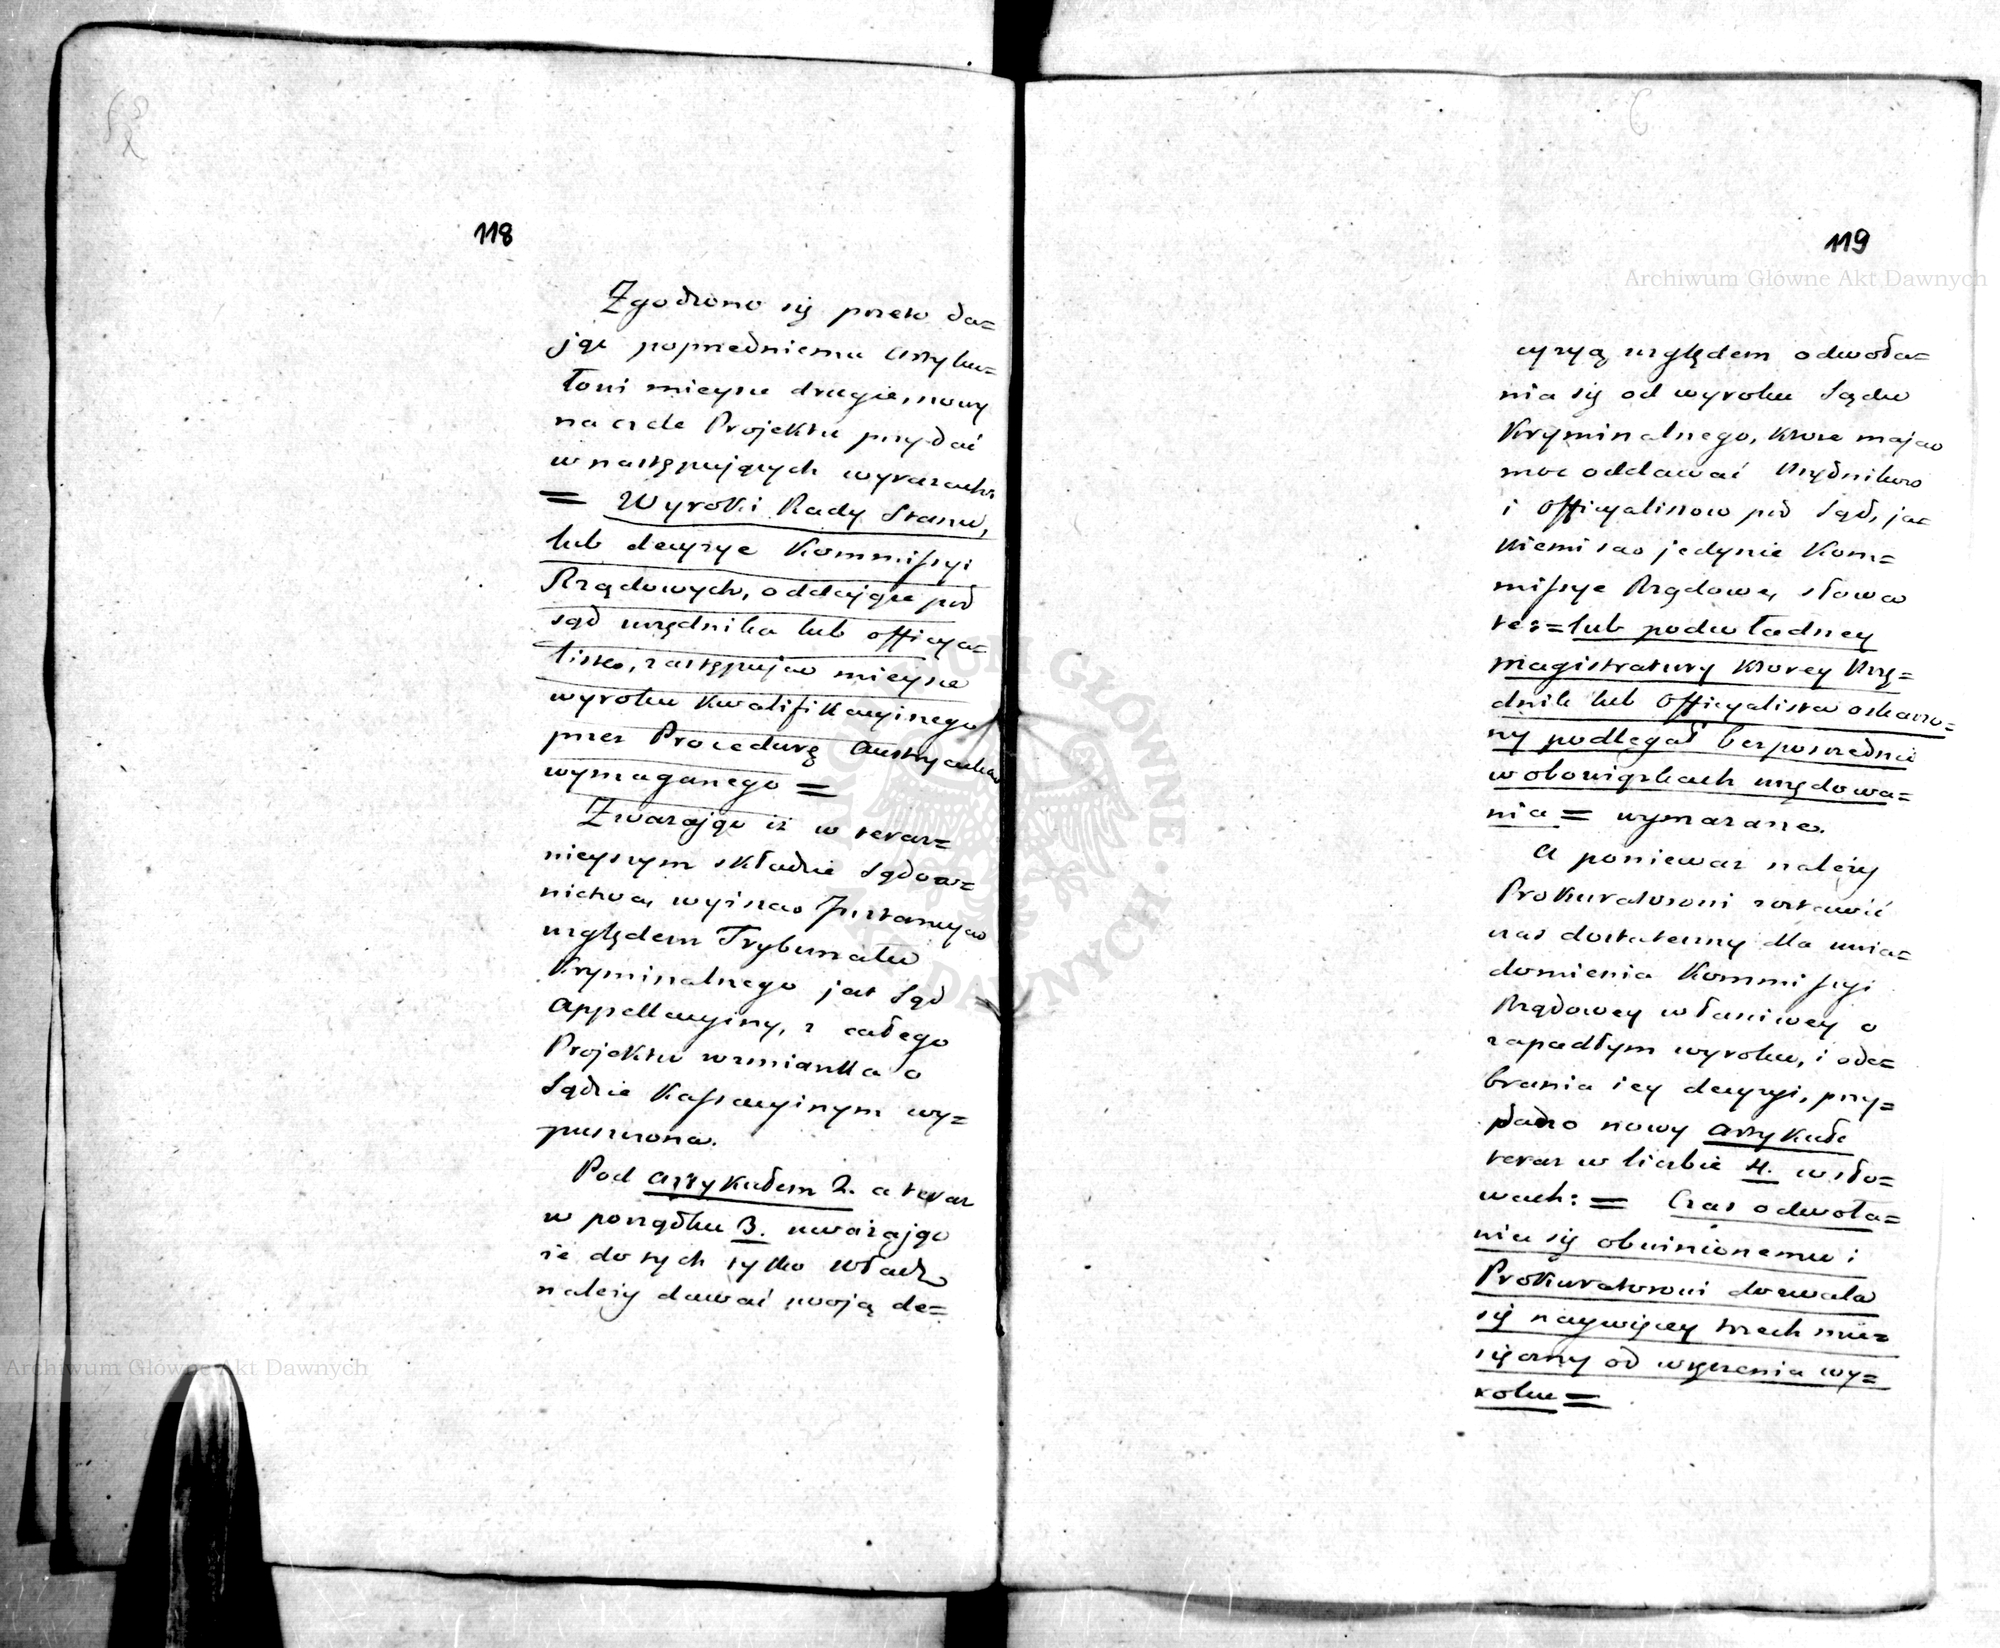 118
Zgodzono się przeto da=
jąc poprzedniemu Artyku=
łowi mieysce drugie, nowy
na czele Projektu przydać
w następujących wyrazach:
= Wyroki Rady Stanu,
lub decyzye Kommissyi
Rządowych, oddające pod
sąd urzędnika lub officya=
listę, zastępują mieysce
wyroku kwalifikacyinego
przez Procedurę Austryacką
wymaganego =
Zważając iż w teraz=
nieyszym składzie Sądow=
nictwa, wyższą Instancyą
względem Trybunału
Kryminalnego jest Sąd
Appellacyiny, z całego
Projektu wzmianka o
Sądzie Kassacyinym wy=
puszczona.
Pod Artykułem 2. a teraz
w porządku 3. uważając
że do tych tylko władz
należy dawać swoją de=
119
cyzyą względem odwoła=
nia się od wyroku Sądu
Kryminalnego, które mają
moc oddawać Urzędników
i Officyalistow pod Sąd, ja=
kiemi są jedynie Kom=
missye Rządowe, słowa
te: = lub podwładney
magistratury ktorey Urzę=
dnik lub Officyalista oskarżo=
ny podlegał bezpośrednie
w obowiązkach urzędowa=
nia = wymazane.
A ponieważ należy
Prokuratorowi zostawić
czas dostateczny dla uwia=
domienia Kommissyi
Rządowey właściwey o
zapadłym wyroku, i ode=
brania iey decyzyi, przy=
dano nowy Artykuł
teraz w liczbie 4. w sło=
wach: = Czas odwoła=
nia się obwinionemu i
Prokuratorowi dozwala
się naywięcey trzech mie=
sięczny od wyrzeczenia wy=
roku =
Archiwum Główne Akt Dawnych
Archiwum Główne Akt Dawnych
ARCHIWUM GŁÓWNE AKT DAWNYCH